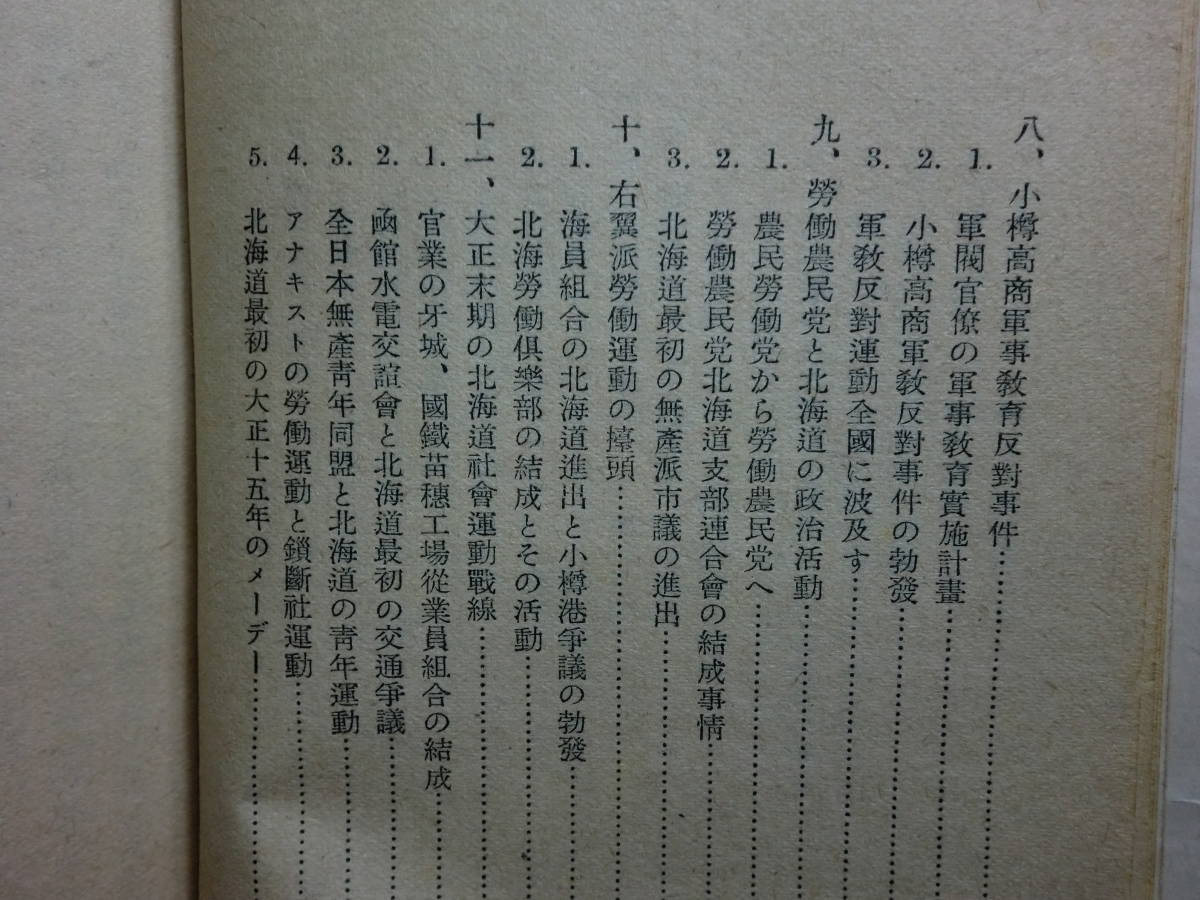 八、小樽高商軍事敎育反對事件
1. 軍閥官僚の軍事敎育實施計畫
2. 小樽高商軍敎反對事件の勃發
3. 軍敎反對運動全國に波及す
九、勞働農民党と北海道の政治活動
1. 農民勞働党から勞働農民党へ
2. 勞働農民党北海道支部連合會の結成事情
3. 北海道最初の無產派市議の進出
十、右翼派勞働運動の擡頭
1. 海員組合の北海道進出と小樽港爭議の勃發
2. 北海勞働俱樂部の結成とその活動
十一、大正末期の北海道社會運動戰線
1. 官業の牙城、國鐵苗穗工場從業員組合の結成
2. 函館水電交誼會と北海道最初の交通爭議
3. 全日本無產靑年同盟と北海道の靑年運動
4. アナキストの勞働運動と鎖斷社運動
5. 北海道最初の大正十五年のメーデー